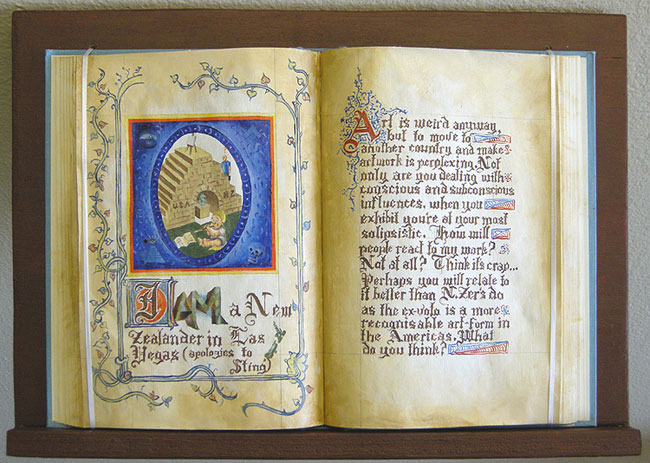 USA
I AM a New
Zealander in Las
Vegas (apologies to
Sting)
Art is weird anyway,
but to move to
another country and make
artwork is perplexing. Not
only are you dealing with
conscious and subconscious
influences, when you
exhibit you're at your most
solipsistic. How will
people react to my work?
Not at all? Think its crap...
Perhaps you will relate to
it better than N.Zer's do
as the ex-voto is a more
recognisable art-form in
the Americas. What
do you think?